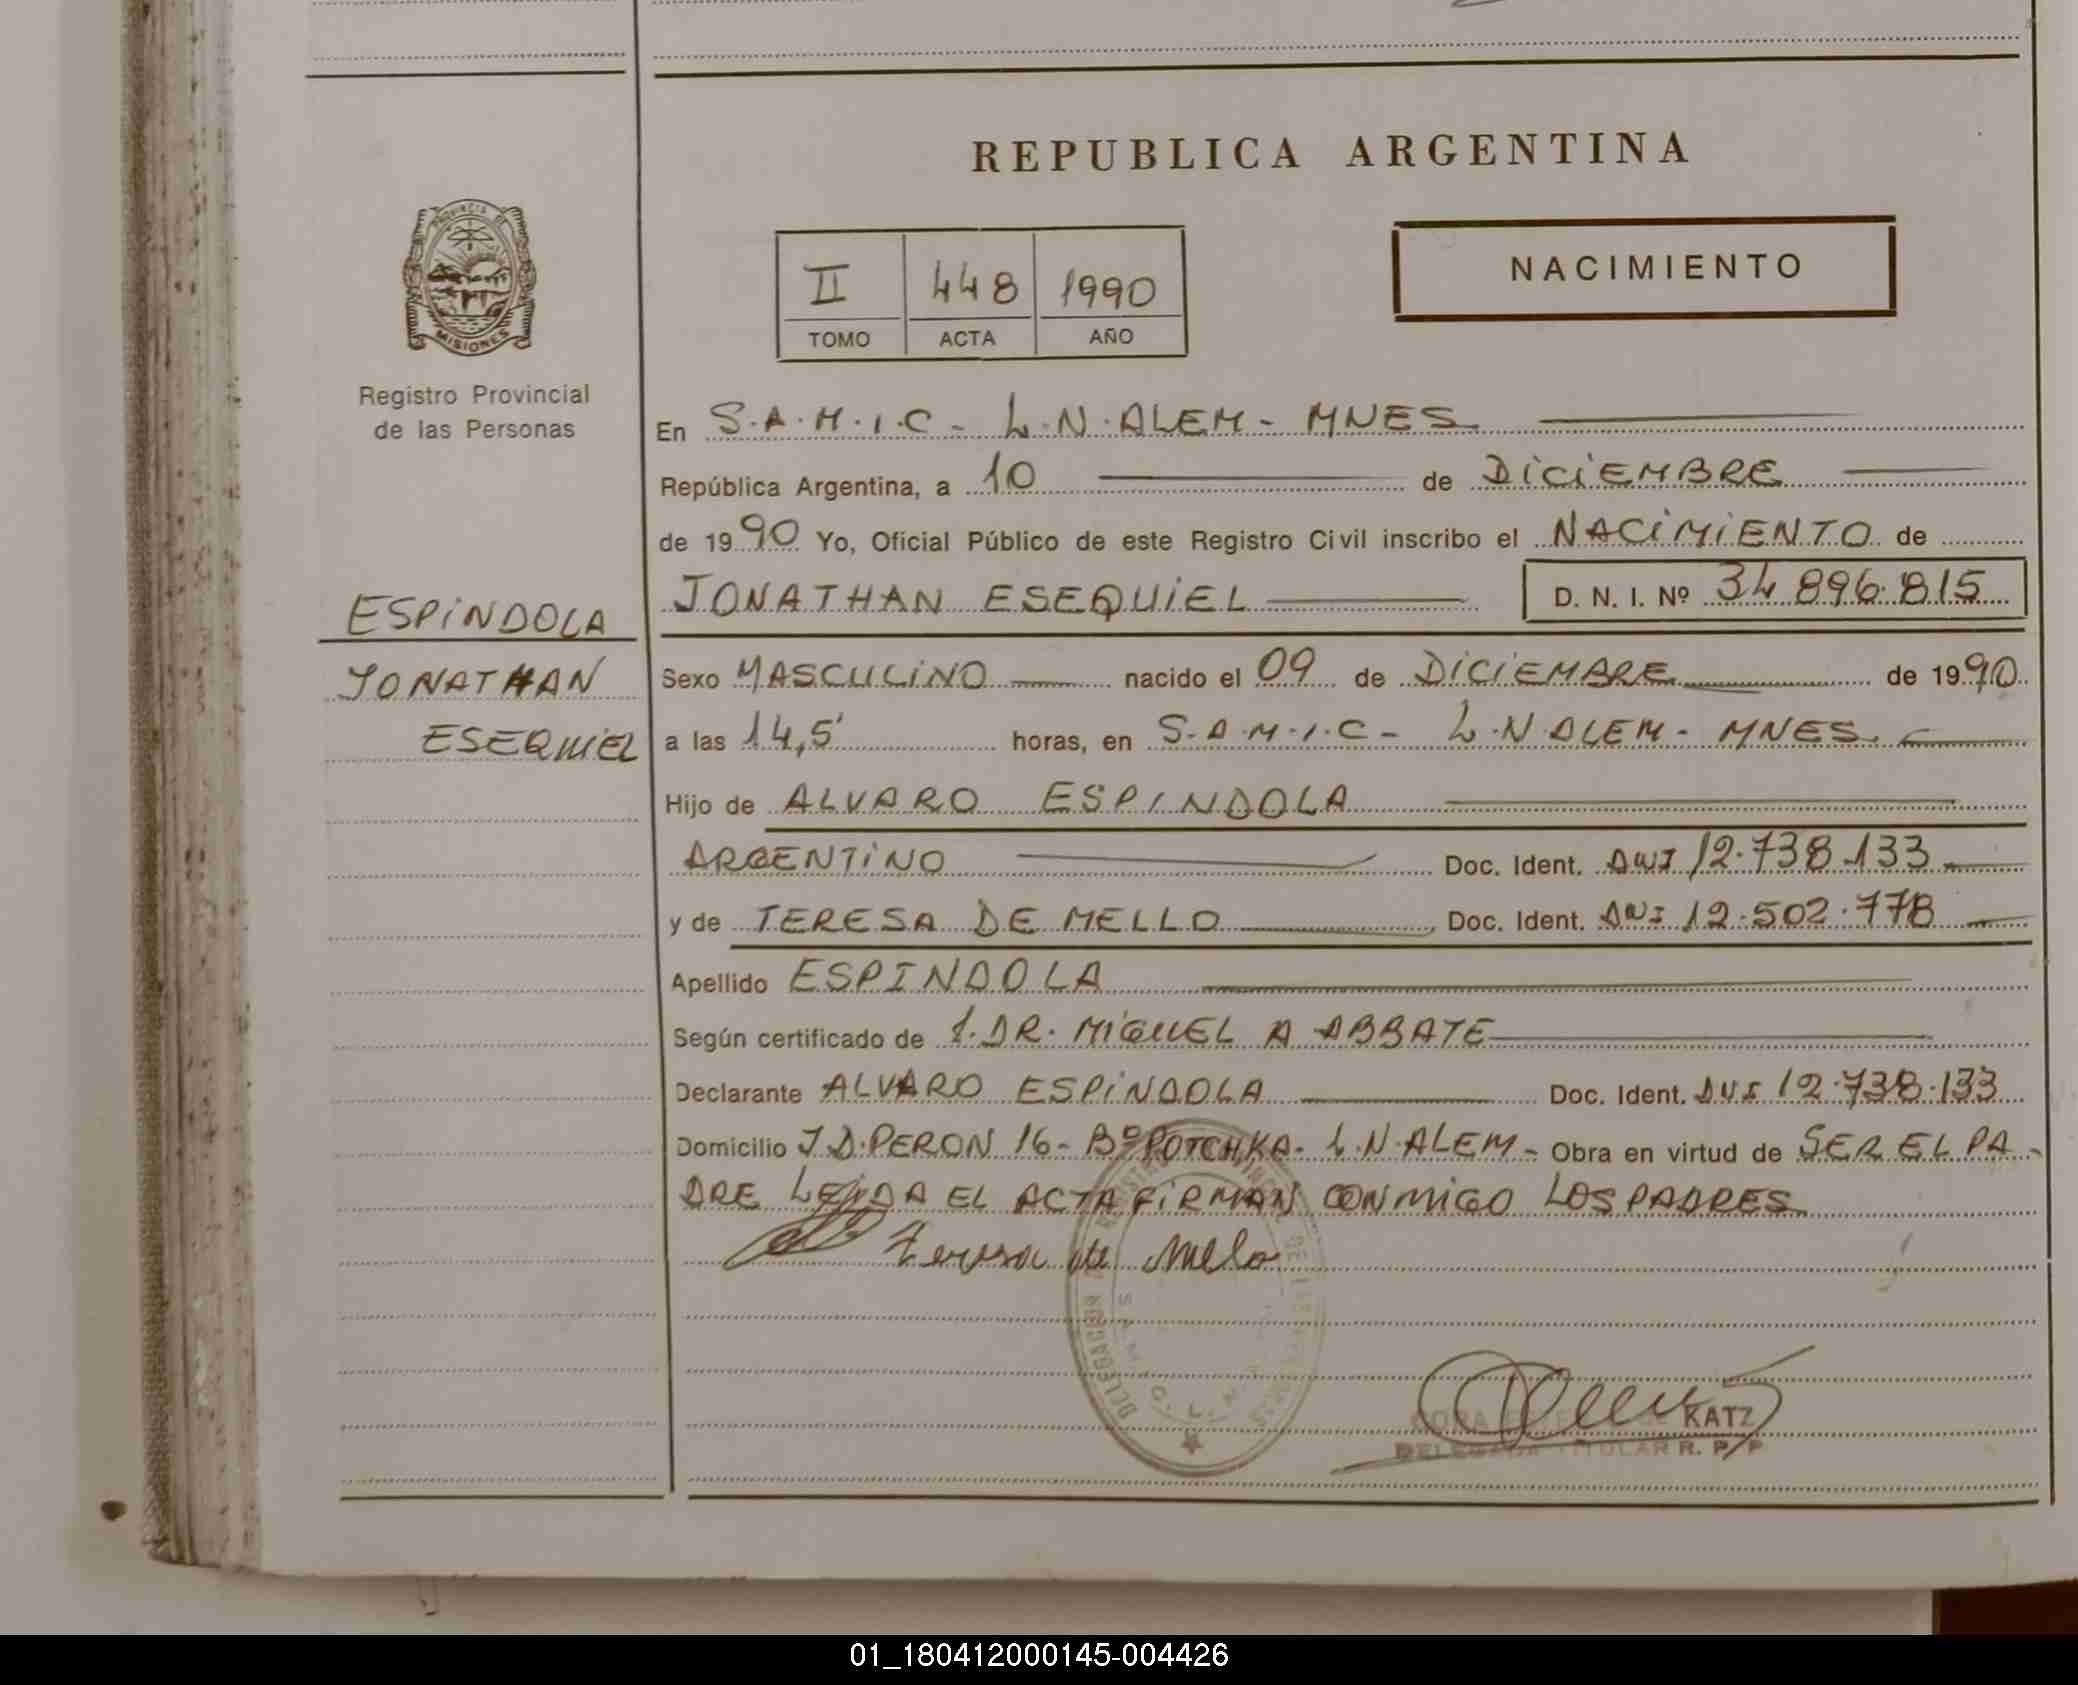 REPUBLICA ARGENTINA
PROVINCIA DE
MISIONES
Registro Provincial
de las Personas
II 448 1990
TOMO ACTA AÑO
NACIMIENTO
En S.A.M.I.C - L.N.ALEM - MNES
República Argentina, a 10 de DICIEMBRE
de 1990 Yo, Oficial Público de este Registro Civil inscribo el NACIMIENTO de
JONATHAN ESEQUIEL D. N. I. Nº 34 896.815
ESPINDOLA
JONATHAN
ESEQUIEL
Sexo MASCULINO nacido el 09 de DICIEMBRE de 1990
a las 14,5' horas, en S.A.M.I.C - L.N ALEM - MNES.
Hijo de ALVARO ESPINDOLA
ARGENTINO Doc. Ident. DNI 12.738.133
y de TERESA DE MELLO Doc. Ident. DNI 12.502.778
Apellido ESPINDOLA
Según certificado de DR. MIGUEL A ABBATE
Declarante ALVARO ESPINDOLA Doc. Ident. DNI 12.738.133
Domicilio J.D.PERON 16 - Bº POTCHKA - L.N.ALEM - Obra en virtud de SER EL PA-
DRE LEIDA EL ACTA FIRMAN CONMIGO LOS PADRES
Teresa de Mello
S.A.M.I.C. L.N.
KATZ
DELEGADA TITULAR R. P. P
01_180412000145-004426